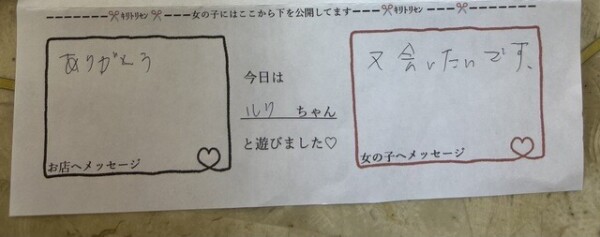 --------✂ｷﾘﾄﾘｾﾝ✂--------女の子にはここから下を公開してます--------✂ｷﾘﾄﾘｾﾝ✂--------
ありがとう
お店へメッセージ
今日は
ルリ ちゃん
と遊びました♡
又会いたいです、
女の子へメッセージ